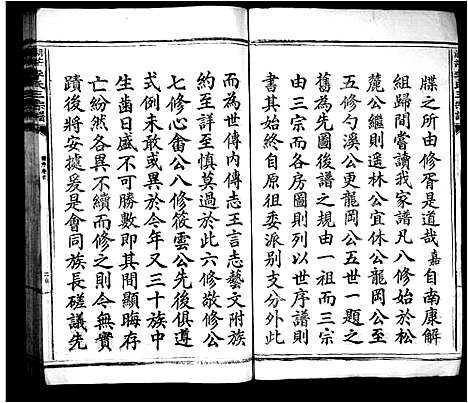 牒之所由修胥是道哉嘉自南康解
組歸閒嘗讀我家譜凡八修始於松
麓公繼則遥林公宜休公龍岡公至
五修勺溪公更龍岡公五世一題之
舊為先圖後譜之規一祖而三宗
由三宗而各房圖則列以世序譜則
書其始終自原徂委派别支分外此
而為世傳内傳志王言志藝文附族
約至詳至慎莫過於此六修敬修公
七修心畬公八修筱雲公先後倣公
式例未敢或岐于今年又三十族中
生齒日盛可勝數即其間顯晦存
亡紛然各異不續而修則令無實
蹟後將安據爰是會同族長磋議先